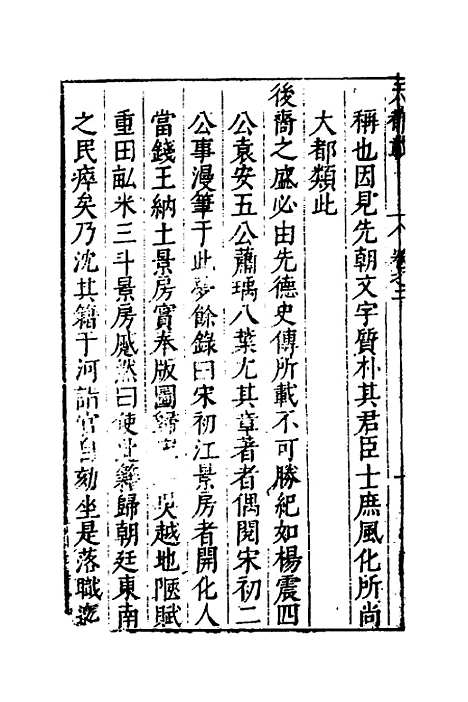 稱也因見先朝文字質朴其君臣士庶風化所尚
大都類此
後裔之盛必由先德史傳所載不可勝紀如楊震四
公袁安五公蕭瑀八葉尤其章著者偶閱宋初二
公事漫筆于此夢餘錄曰宋初江景房者開化人
當錢王納土景房實奉版圖歸 吳越地陿賦
重田畝米三斗景房慼然曰使此籍歸朝廷東南
之民瘁矣乃沈其籍于河詣官自劾坐是落職